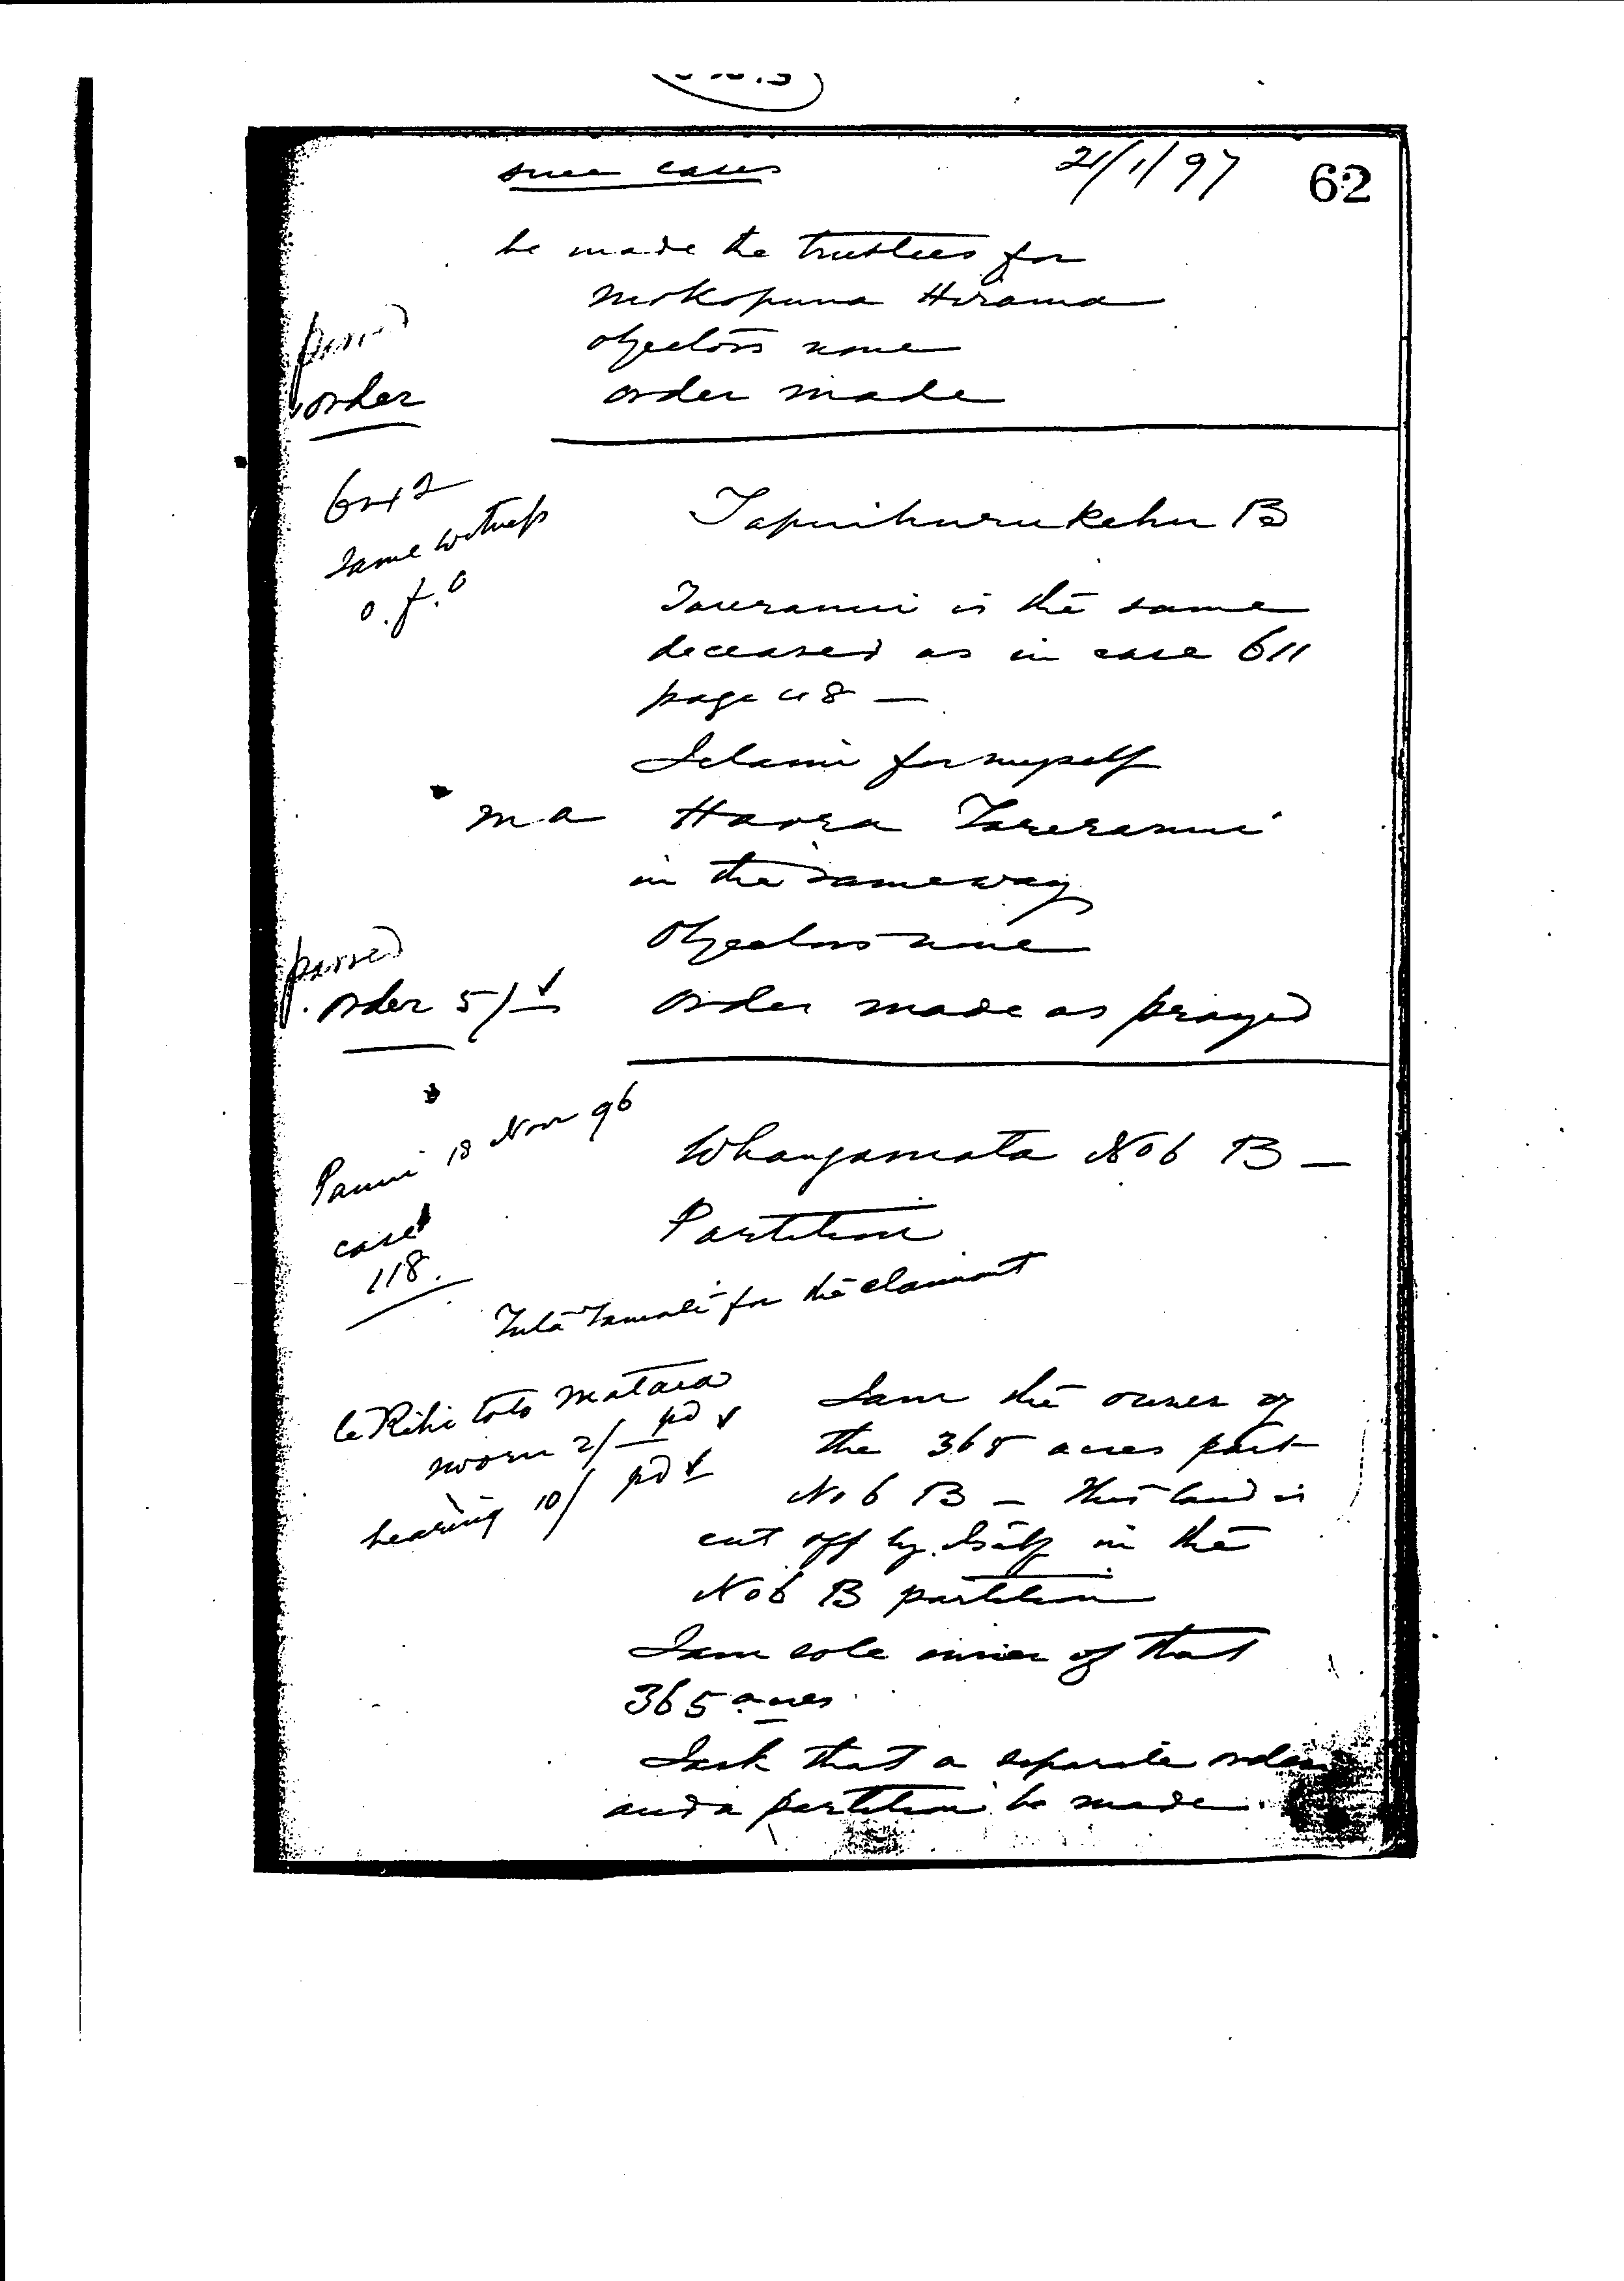 succ cases 21/1/97 62
be made the trustees for
Mokopuna Hirama
objectors none
passed
order order made
Same witness
o.f.o
Tapuihurukehu B
Tareranui is the same
deceased as in case 611
page 48 —
I claim for myself
m a Haora Tareranui
in the same way
Objectors none
passed
order 5/- order made as prayed
Panui 18 Nov 96
case
118.
Whangamata No 6 B —
Partition
for the claimant
sworn 2/- pd
hearing 10/ pd
I am the owner of
the 365 acres part
No 6 B — This land is
cut off by itself in the
No 6 B partition
I am sole owner of that
365 acres
I ask that a separate order
and a partition be made.